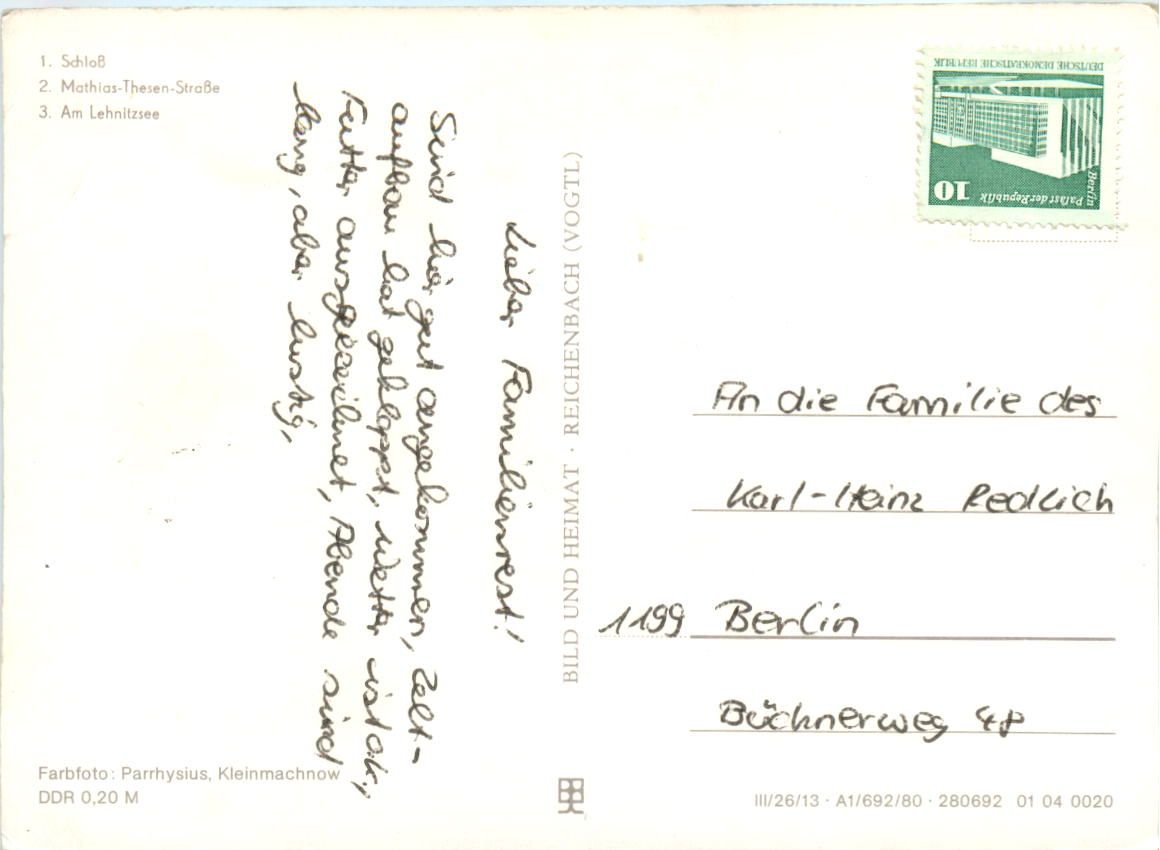 1. Schloß
2. Mathias-Thesen-Straße
3. Am Lehnitzsee
Lieber Familienrest!
Sind hier gut angekommen, Zelt-
aufbau hat geklappt, Wetter ist ok,
Futter ausgezeichnet, Abende sind
lang, aber lustig,
Farbfoto: Parrhysius, Kleinmachnow
DDR 0,20 M
BILD UND HEIMAT · REICHENBACH (VOGTL)
DEUTSCHE DEMOKRATISCHE REPUBLIK
Berlin
Palast der Republik
10
An die Familie des
Karl-Heinz Redlich
1199 Berlin
Büchnerweg 48
III/26/13 · A1/692/80 · 280692 01 04 0020